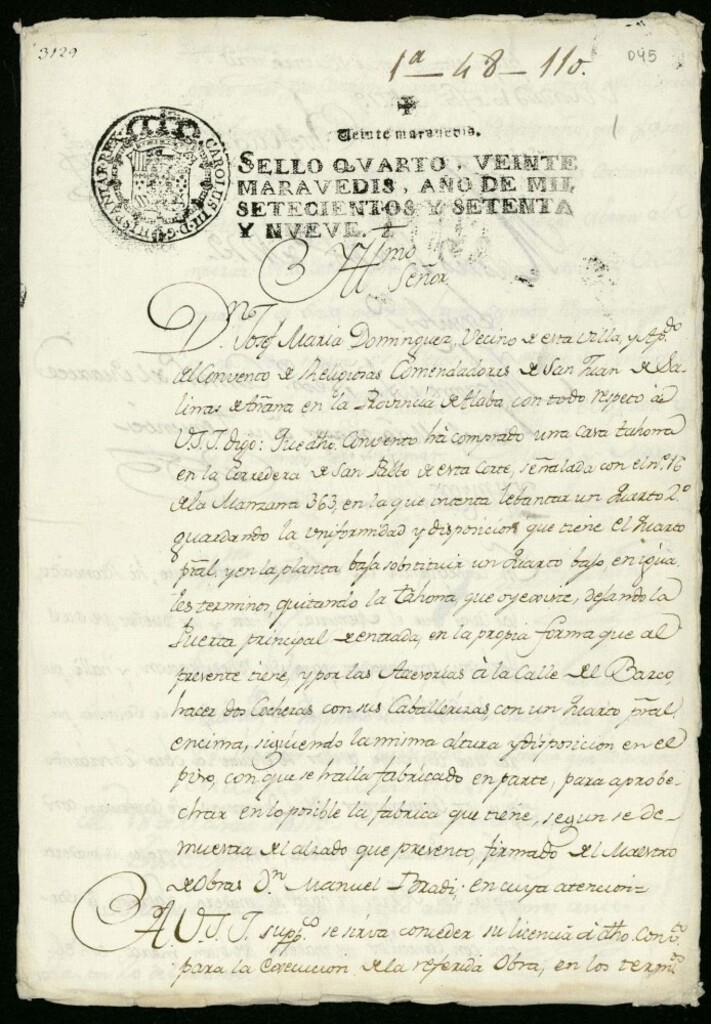 3129
1ª-48-110.
045
1
Veinte maravedis.
CAROLUS III D. G. HISPANIAR. REX
SELLO QVARTO, VEINTE
MARAVEDIS, AÑO DE MIL
SETECIENTOS Y SETENTA
Y NVEVE.
Yllmo
Señor
Dn. Josef Maria Dominguez, Vecino de esta villa, y Apdo
del Convento de Religiosas Comendadoras de San Juan de Sa-
linas de Añana en la Provincia de Alaba, con todo respeto à
V.S.I. digo: Que dho. Convento hà comprado una casa tahona
en la Corredera de San Pablo de esta Corte, señalada con el nº. 16
de la Manzana 363, en la que intenta lebantar un Quarto 2º
guardando la uniformidad y disposicion que tiene el Quarto
pral. y en la planta baja sobstituir un Quarto bajo en igua-
les terminos, quitando la tahona, que oy existe, dejando la
Puerta principal de entrada, en la propia forma que al
presente tiene, y por las Acesorias à la Calle del Barco,
hacer dos Cocheras con sus Caballerizas, con un Quarto pral.
encima, siguiendo la misma altura y disposicion en el
piso, con que se halla fabricado en parte, para aprobe-
char en lo posible la fabrica que tiene, segun se de-
muestra del alzado que presento, firmado del Maestro
de Obras Dn. Manuel Bradi: en cuya atencion=
A. V.S.I. suppco. se sirva conceder su licencia à dho. Conto.
para la execucion de la referida Obra, en los termis